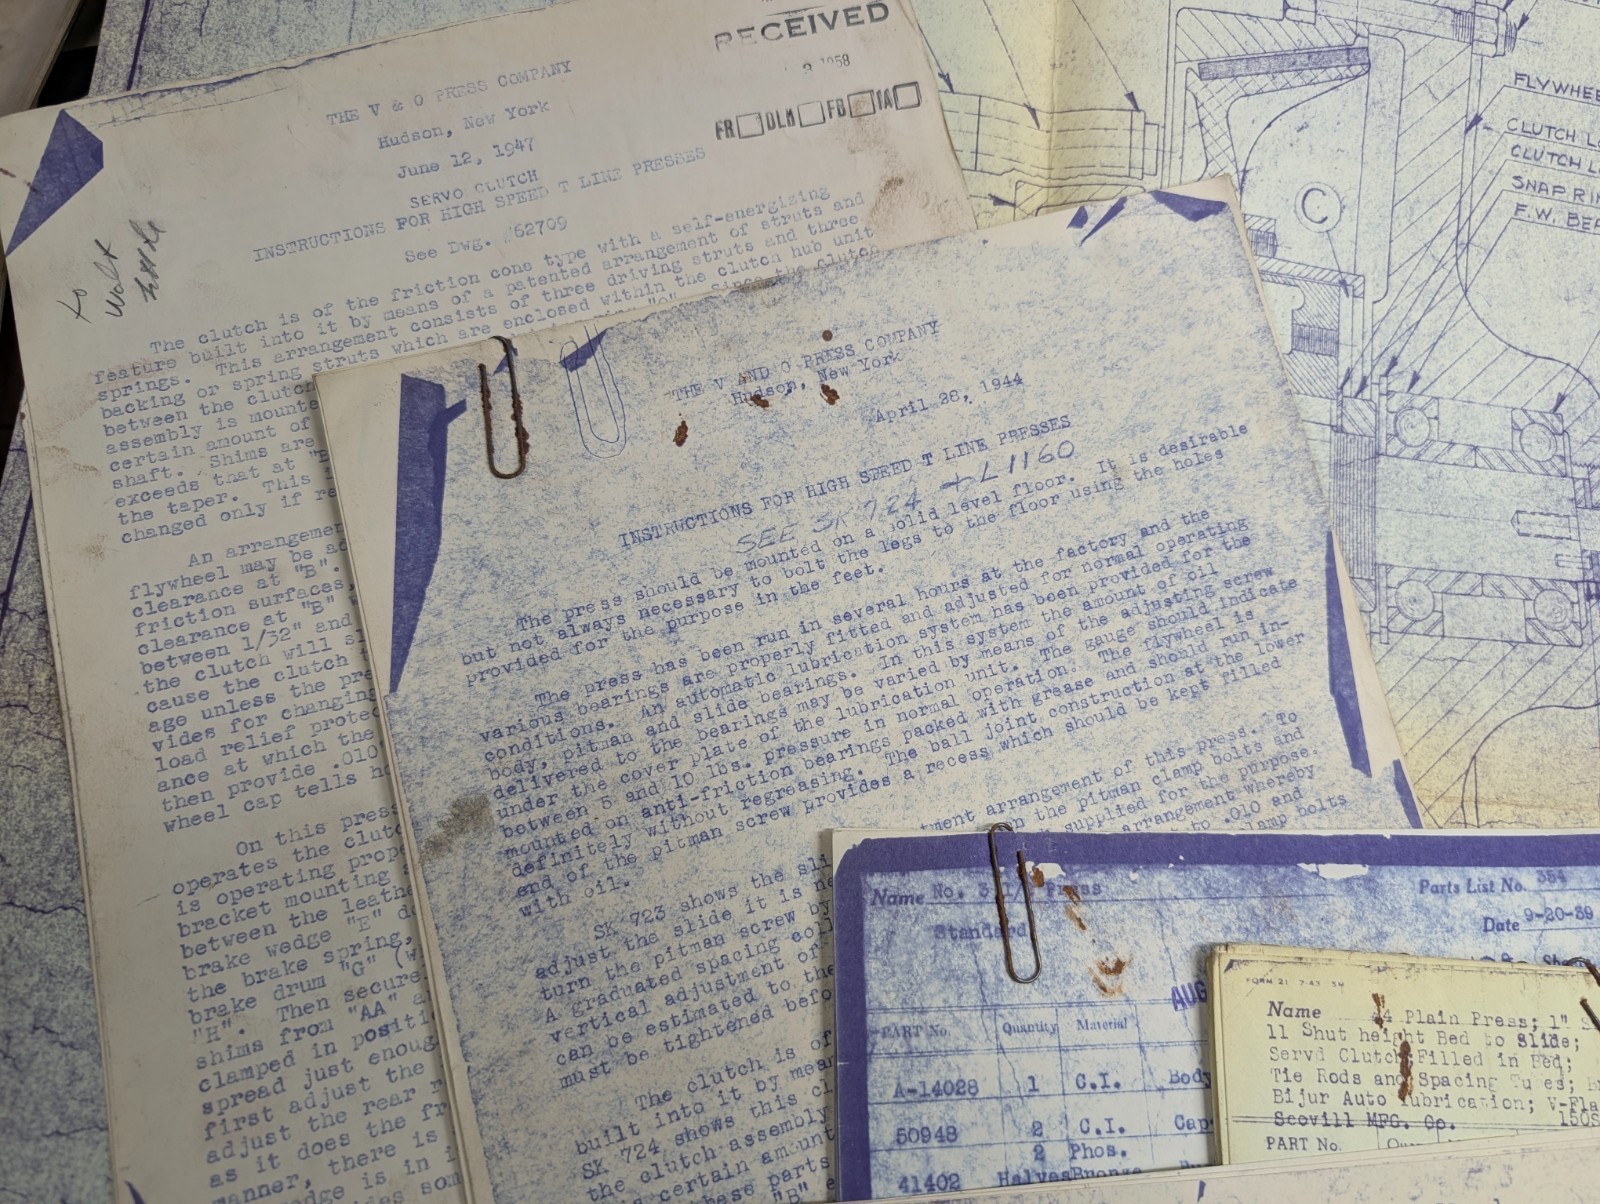 RECEIVED
1958
FR DLM FB IA
THE V & O PRESS COMPANY
Hudson, New York
June 12, 1947
SERVO CLUTCH
INSTRUCTIONS FOR HIGH SPEED T LINE PRESSES
See Dwg. #62709
to
Walt
The clutch is of the friction cone type with a self-energizing
feature built into it by means of a patented arrangement of struts and
springs. This arrangement consists of three driving struts and three
backing or spring struts which are enclosed within the clutch hub unit
between the clutch "O" since the clutch
assembly is mounte
certain amount of
shaft. Shims are
exceeds that at "B
the taper. This
changed only if re
An arrangeme
flywheel may be ad
clearance at "B".
friction surfaces,
clearance at "B"
between 1/32" and
the clutch will sl
cause the clutch
age unless the pre
vides for changing
load relief protec
ance at which the
then provide .010
wheel cap tells ho
On this press
operates the clutc
is operating prope
bracket mounting
between the leathe
brake wedge "E" do
the brake spring,
brake drum "G" (w
"H". Then secure
shims from "AA" a
clamped in positi
spread just enoug
first adjust the
adjust the rear
as it does the fr
manner, there is
edge is in
des som
THE V AND O PRESS COMPANY
Hudson, New York
April 28, 1944
INSTRUCTIONS FOR HIGH SPEED T LINE PRESSES
SEE SK 724 + L1160
The press should be mounted on a solid level floor. It is desirable
but not always necessary to bolt the legs to the floor using the holes
provided for the purpose in the feet.
The press has been run in several hours at the factory and the
various bearings are properly fitted and adjusted for normal operating
conditions. An automatic lubrication system has been provided for the
body, pitman and slide bearings. In this system the amount of oil
delivered to the bearings may be varied by means of the adjusting screw
under the cover plate of the lubrication unit. The gauge should indicate
between 5 and 10 lbs. pressure in normal operation. The flywheel is
mounted on anti-friction bearings packed with grease and should run in-
definitely without regreasing. The ball joint construction at the lower
end of the pitman screw provides a recess which should be kept filled
with oil.
SK 723 shows the sli tment arrangement of this press. To
adjust the slide it is ne n the pitman clamp bolts and
turn the pitman screw by supplied for the purpose.
A graduated spacing coll arrangement whereby
vertical adjustment of to .010 and
can be estimated to the clamp bolts
must be tightened befo
The clutch is of
built into it by mean
SK 724 shows this cl
the clutch assembly
certain amount
hese parts
"B"
C
FLYWHEE
CLUTCH L
CLUTCH L
SNAP RIN
F.W. BEA
Name No. 3 1/ Press
Standard
Parts List No. 354
Date 9-20-39
AUG
PART No. Quantity Material
A-14028 1 C.I. Body
50948 2 C.I. Cap
2 Phos.
41402 Halves Bronze
FORM 21 7-43 5M
Name #4 Plain Press; 1" S
11 Shut height Bed to Slide;
Servo Clutch Filled in Bed;
Tie Rods and Spacing Tubes; B
Bijur Auto lubrication; V-Fla
Scovill MFG. Co. 150S
PART No.